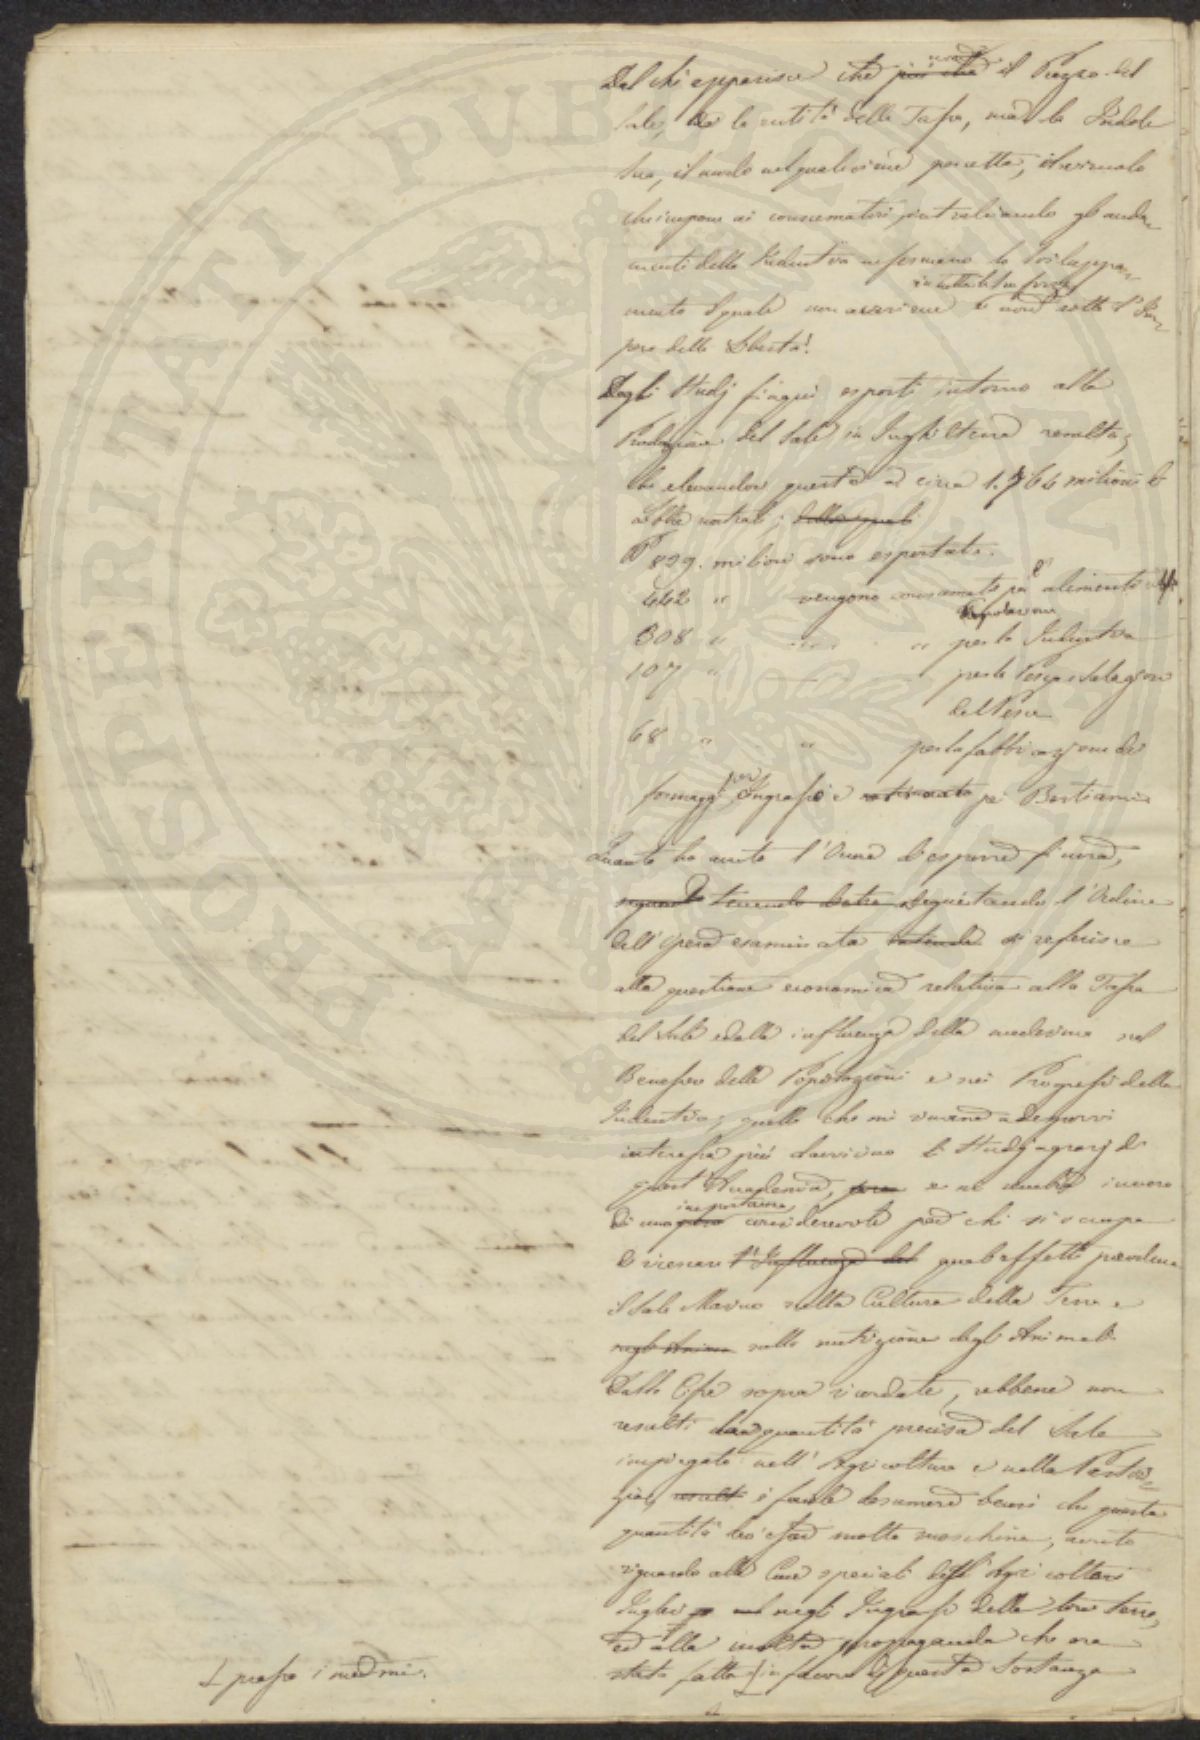 Dal chè apparisce che non il Prezzo del
Sale, la entità della Tassa, ma la Indole
sua, il modo nel quale viene percetta, il vincolo
che impone ai consumatori intralciando gli anda-
menti della Industria ne fermano lo Sviluppa-
mento il quale non avviene in tutta la sua forza se non sotto l'Im-
pero della Libertà.
Dagli Studj finqui esposti intorno alla
Produzione del Sale in Inghilterra resulta,
che elevandosi questa a circa 1.766 milioni di
Libbre nostrali; delle quali
899. milioni sono esportate.
442 " vengono consumate per l'alimento della
Popolazione
308 " " " per la Industria
107 " per la Pesca e Salagione
del Pesce
68 " " per la fabbricazione dei
formaggi per Ingrassi e pei Bestiami
Quanto ho avuto l'Onore di esporre finora,
seguendo tenendo dietro seguitando l'Ordine
dell'Opera esaminata si referisce
alla questione economica relativa alla Tassa
del Sale e alla influenza della medesima nel
Benessere delle Popolazioni e nei Progressi della
Industria; quello che mi rimane a dirvi
interessa più davvicino li Studj agrarj di
quest'Accademia, e mi sembra invero
di una importanza considerevole per chi si occupa
di vienere l'Influenza del quali effetti produca
il Sale Marino nella Cultura della Terra e
negli Anima nella nutrizione degli Animali.
Dalle Cifre sopra ricordate, sebbene non
resulti la quantità precisa del Sale
impiegato nell'Agricoltura e nella Pastori-
zia, resulti è facile desumere bensì che questa
quantità dee essere molto meschina, avuto
riguardo alle Cure speciali degli Agricoltori
Inglesi negli Ingrassi delle loro terre,
ed alla molta propaganda che era
stata fatta in favore di questa Sostanza
presso i medmi.